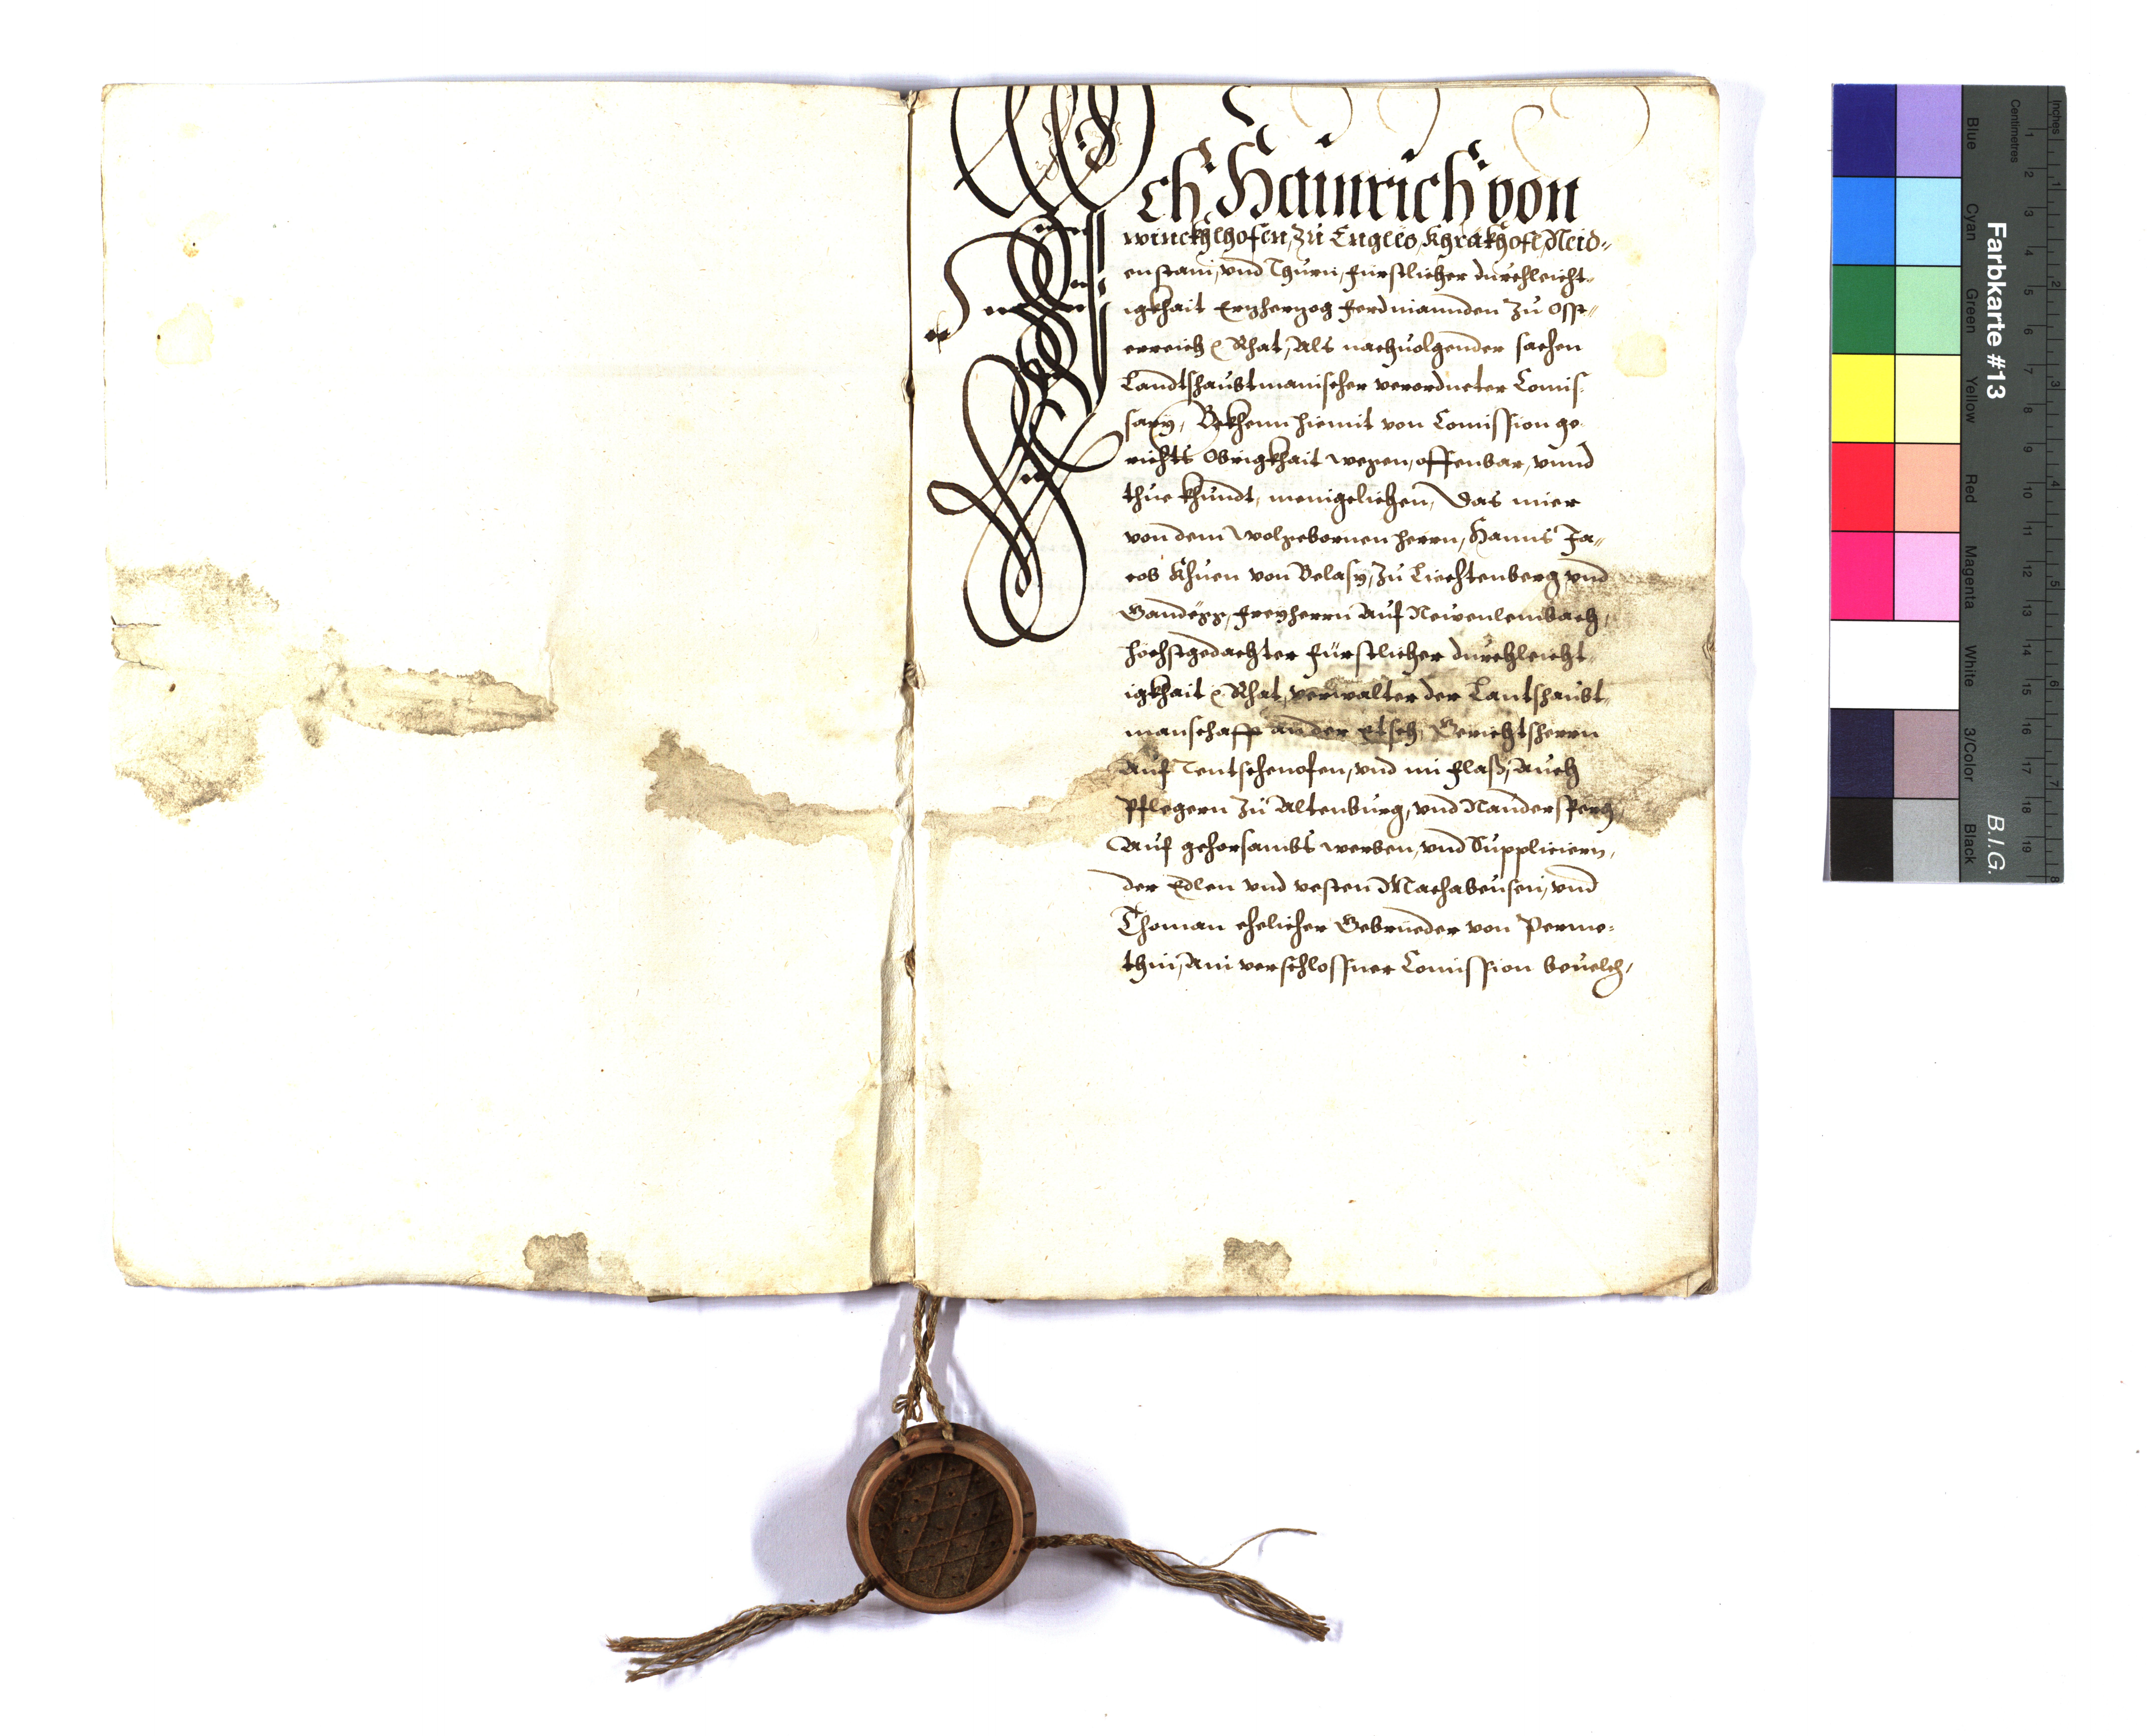 Ich Hainrich von
winckhlhofen, zu Englös, Khrakhofl, Neid-
enstain, vnd Thurn, fürstlicher durchleicht-
igkhait Erzherzog Ferdinannden zu Osst-
erreich &c Rhat, Als nachuolgender sachen
Landtshaubtmanischer verordneter Comis-
sary, Bekhenn hiemit von Comission ge-
richts Obrigkhait wegen, offenbar, vnnd
thue khundt, menigelichen, Das mier
von dem wolgebornen herrn, Hanns Ja-
cob Khuen von Belasy, zu Liechtenberg vnd
Gandegg, freyherrn auf Newenlembach,
höchstgedachter fürstlicher durchleicht-
igkhait &c Rhat, verwalter der Lantshaubt-
manschafft an der Etsch, Gerichtsherrn
auf Teutschenofen, vnd im flaß, auch
Pflegern zu Altenburg, vnd Naudersperg,
Auf gehorsambs werben, vnd Suppliciern,
der Edlen vnd vesten Machabeusen, vnd
Thoman ehelicher Gebrueder von Perme-
thin, Ain verschlossner Comission beuelch,
Farbkarte #13
B.I.G.
Inches
Centimetres
1 2 3 4 5 6 7 8 9 10 11 12 13 14 15 16 17 18 19
1 2 3 4 5 6 7 8
Blue
Cyan
Green
Yellow
Red
Magenta
White
3/Color
Black